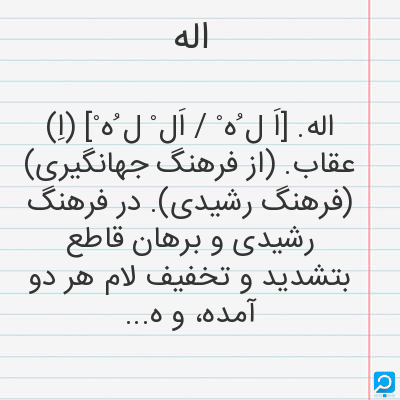 اله
اله. [اَ ل ُه ْ / اَل ْ ل ُه ْ] (اِ)
عقاب. (از فرهنگ جهانگیری)
(فرهنگ رشیدی). در فرهنگ
رشیدی و برهان قاطع
بتشدید و تخفیف لام هر دو
آمده، و ه...